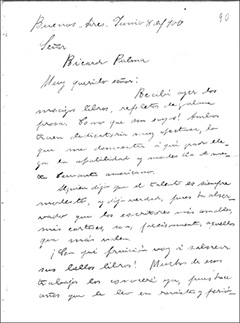 90
Buenos Aires. Junio 8 de 900
Señor
Ricardo Palma
Muy querido señor:
Recibí ayer dos
libros, repletos de galana
prosa. Como que son suyos! Ambos
traen dedicatoria muy afectuosa, lo
que me demuestra á qué grado lle-
ga la afabilidad y modestia de nues-
tro americano.
Alguien dijo que el talento es siempre
modesto, y dijo verdad, pues he obser-
vado que los escritores más amables,
más corteses, son, precisamente, aquellos
que más valen.
¡Con qué fruición voy á saborear
sus bellos libros! Muchos de esos
trabajos los conocía ya, pues hace
años que le leo en revistas y perió-